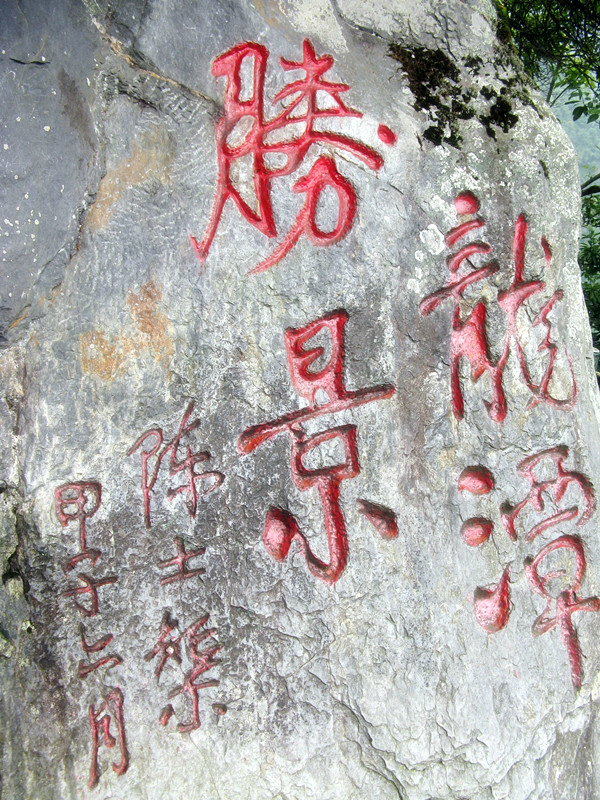 龍潭
勝景
陈士榘
甲子二月